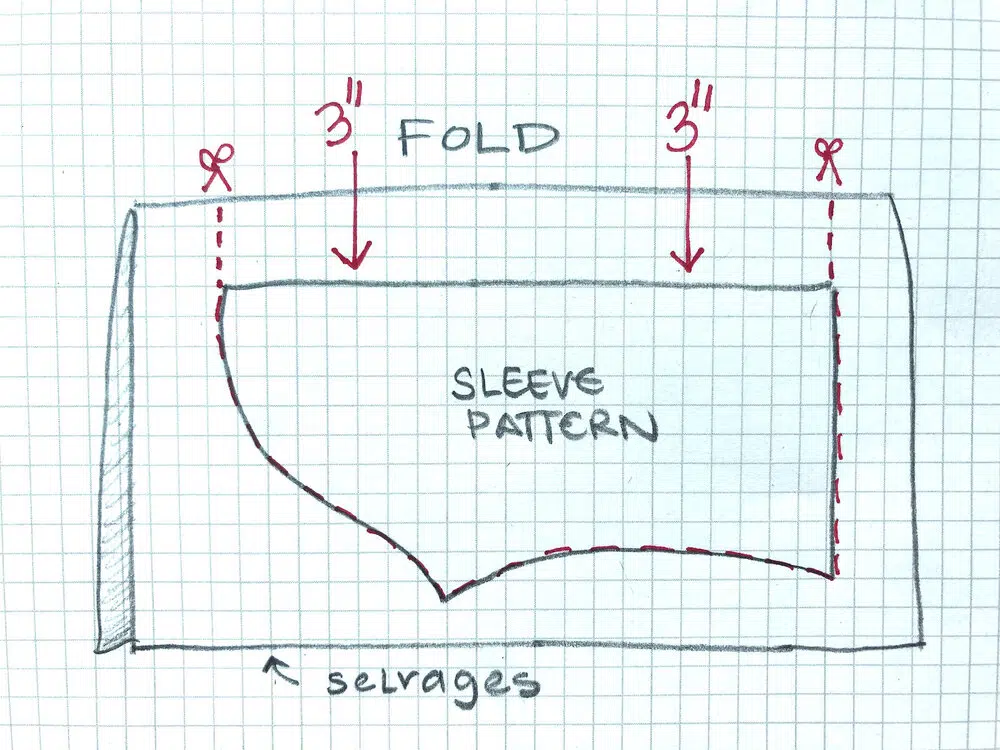 3"
FOLD
3"
SLEEVE
PATTERN
selvages